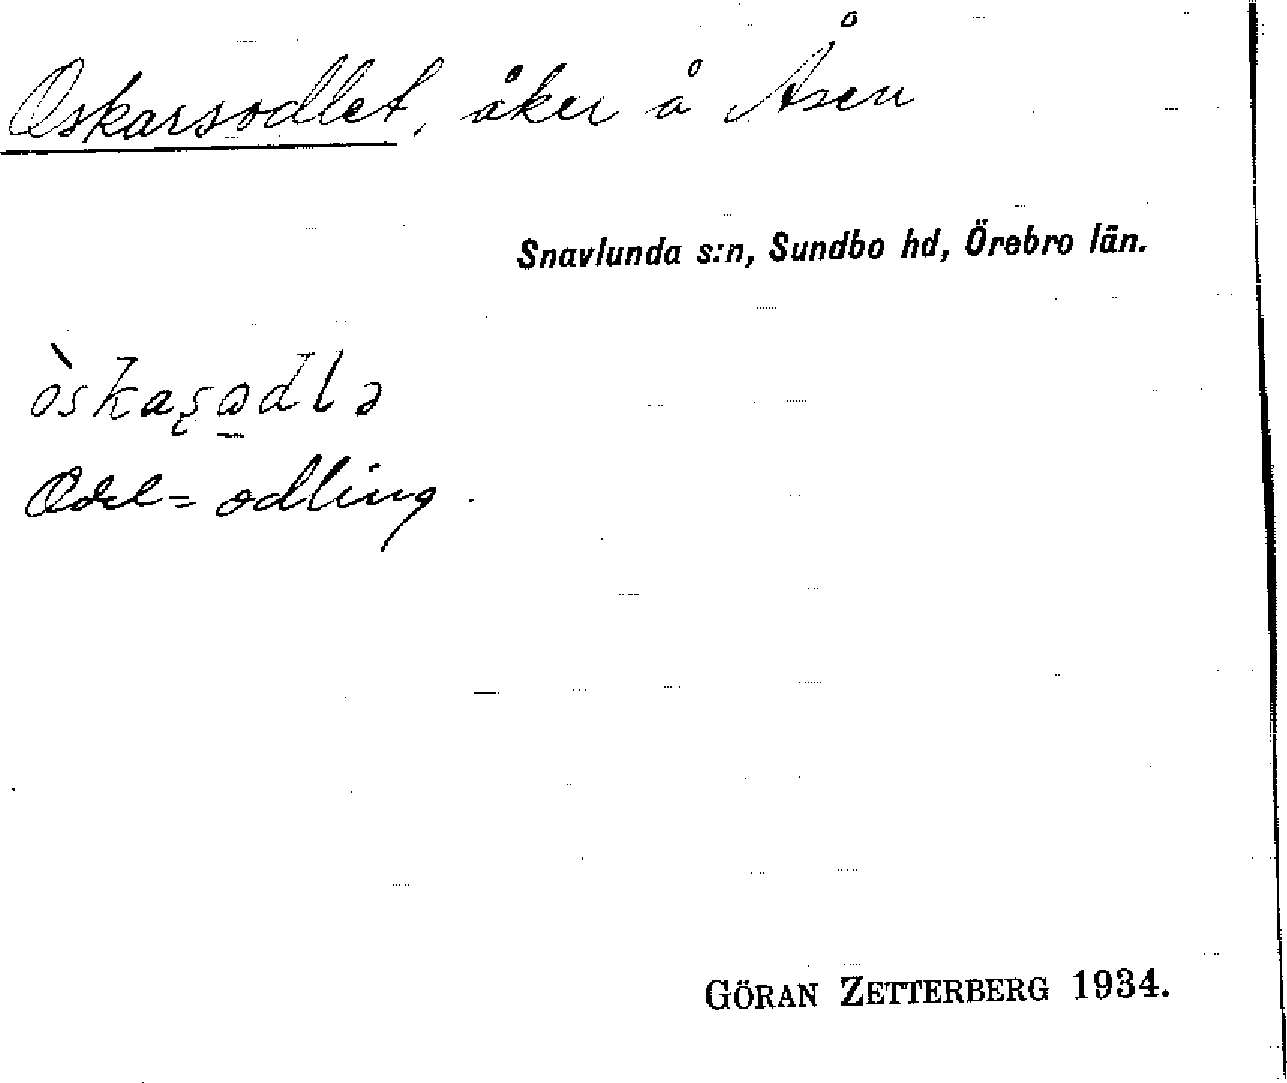 Oskarsodlet, åker å Åsen
Snavlunda s:n, Sundbo hd, Örebro län.
òskaʂɷdlə
Odel = odling.
GÖRAN ZETTERBERG 1934.